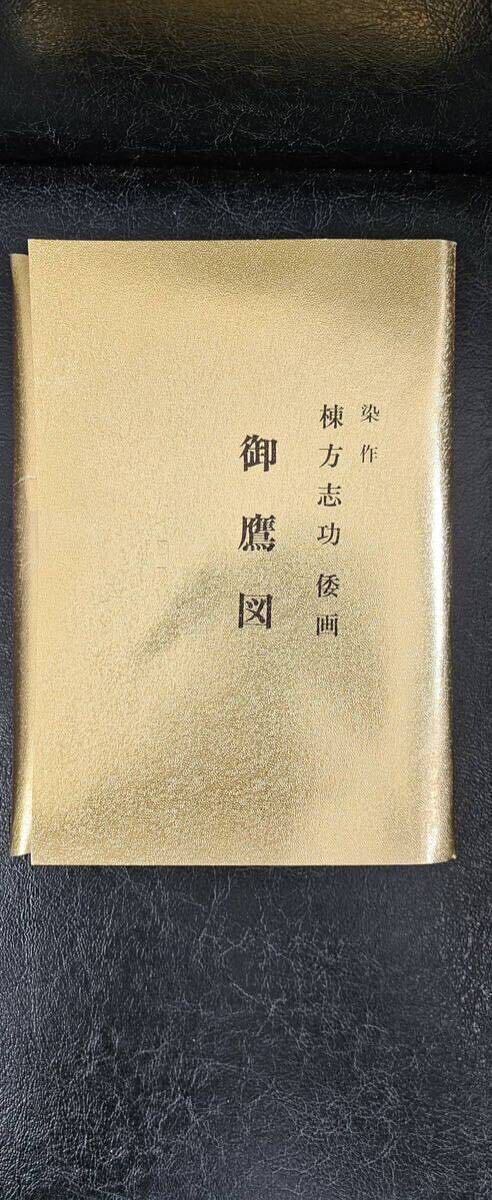 染作
棟方志功 倭画
御鷹図